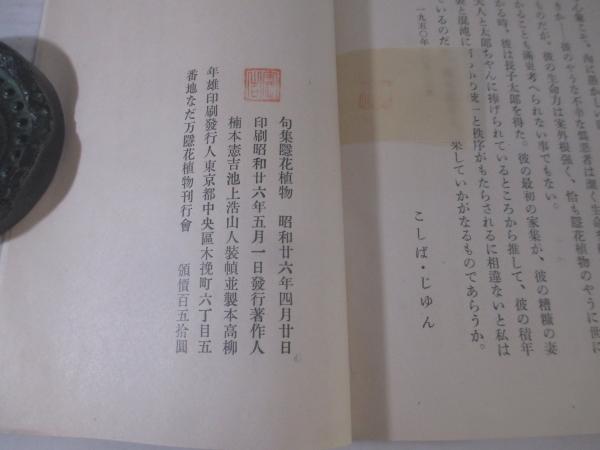 心象こよ、淘に愚かしい
きか――彼のやうな不幸な偏患者は潔く生命を
ものだが、彼の生命力は案外根強く、恰も隠花植物のやうに世に
かることも満更考へられない事でもない。
かる時、彼は長子太郎を得た。彼の最初の家集が、彼の糟糠の妻
夫人と太郎ちゃんに捧げられているところから推して、彼の積年
と混沌に
統一と秩序がもたらされるに相違ないと私は
ているのだ
果していかがなるものであらうか。
一九五〇年
こしば・じゅん
句集隱花植物 昭和廿六年四月廿日
印刷昭和廿六年五月一日發行著作人
楠本憲吉池上浩山人裝幀並製本高柳
年雄印刷發行人東京都中央區木挽町六丁目五
番地なだ万隱花植物刊行會 頒價百五拾圓